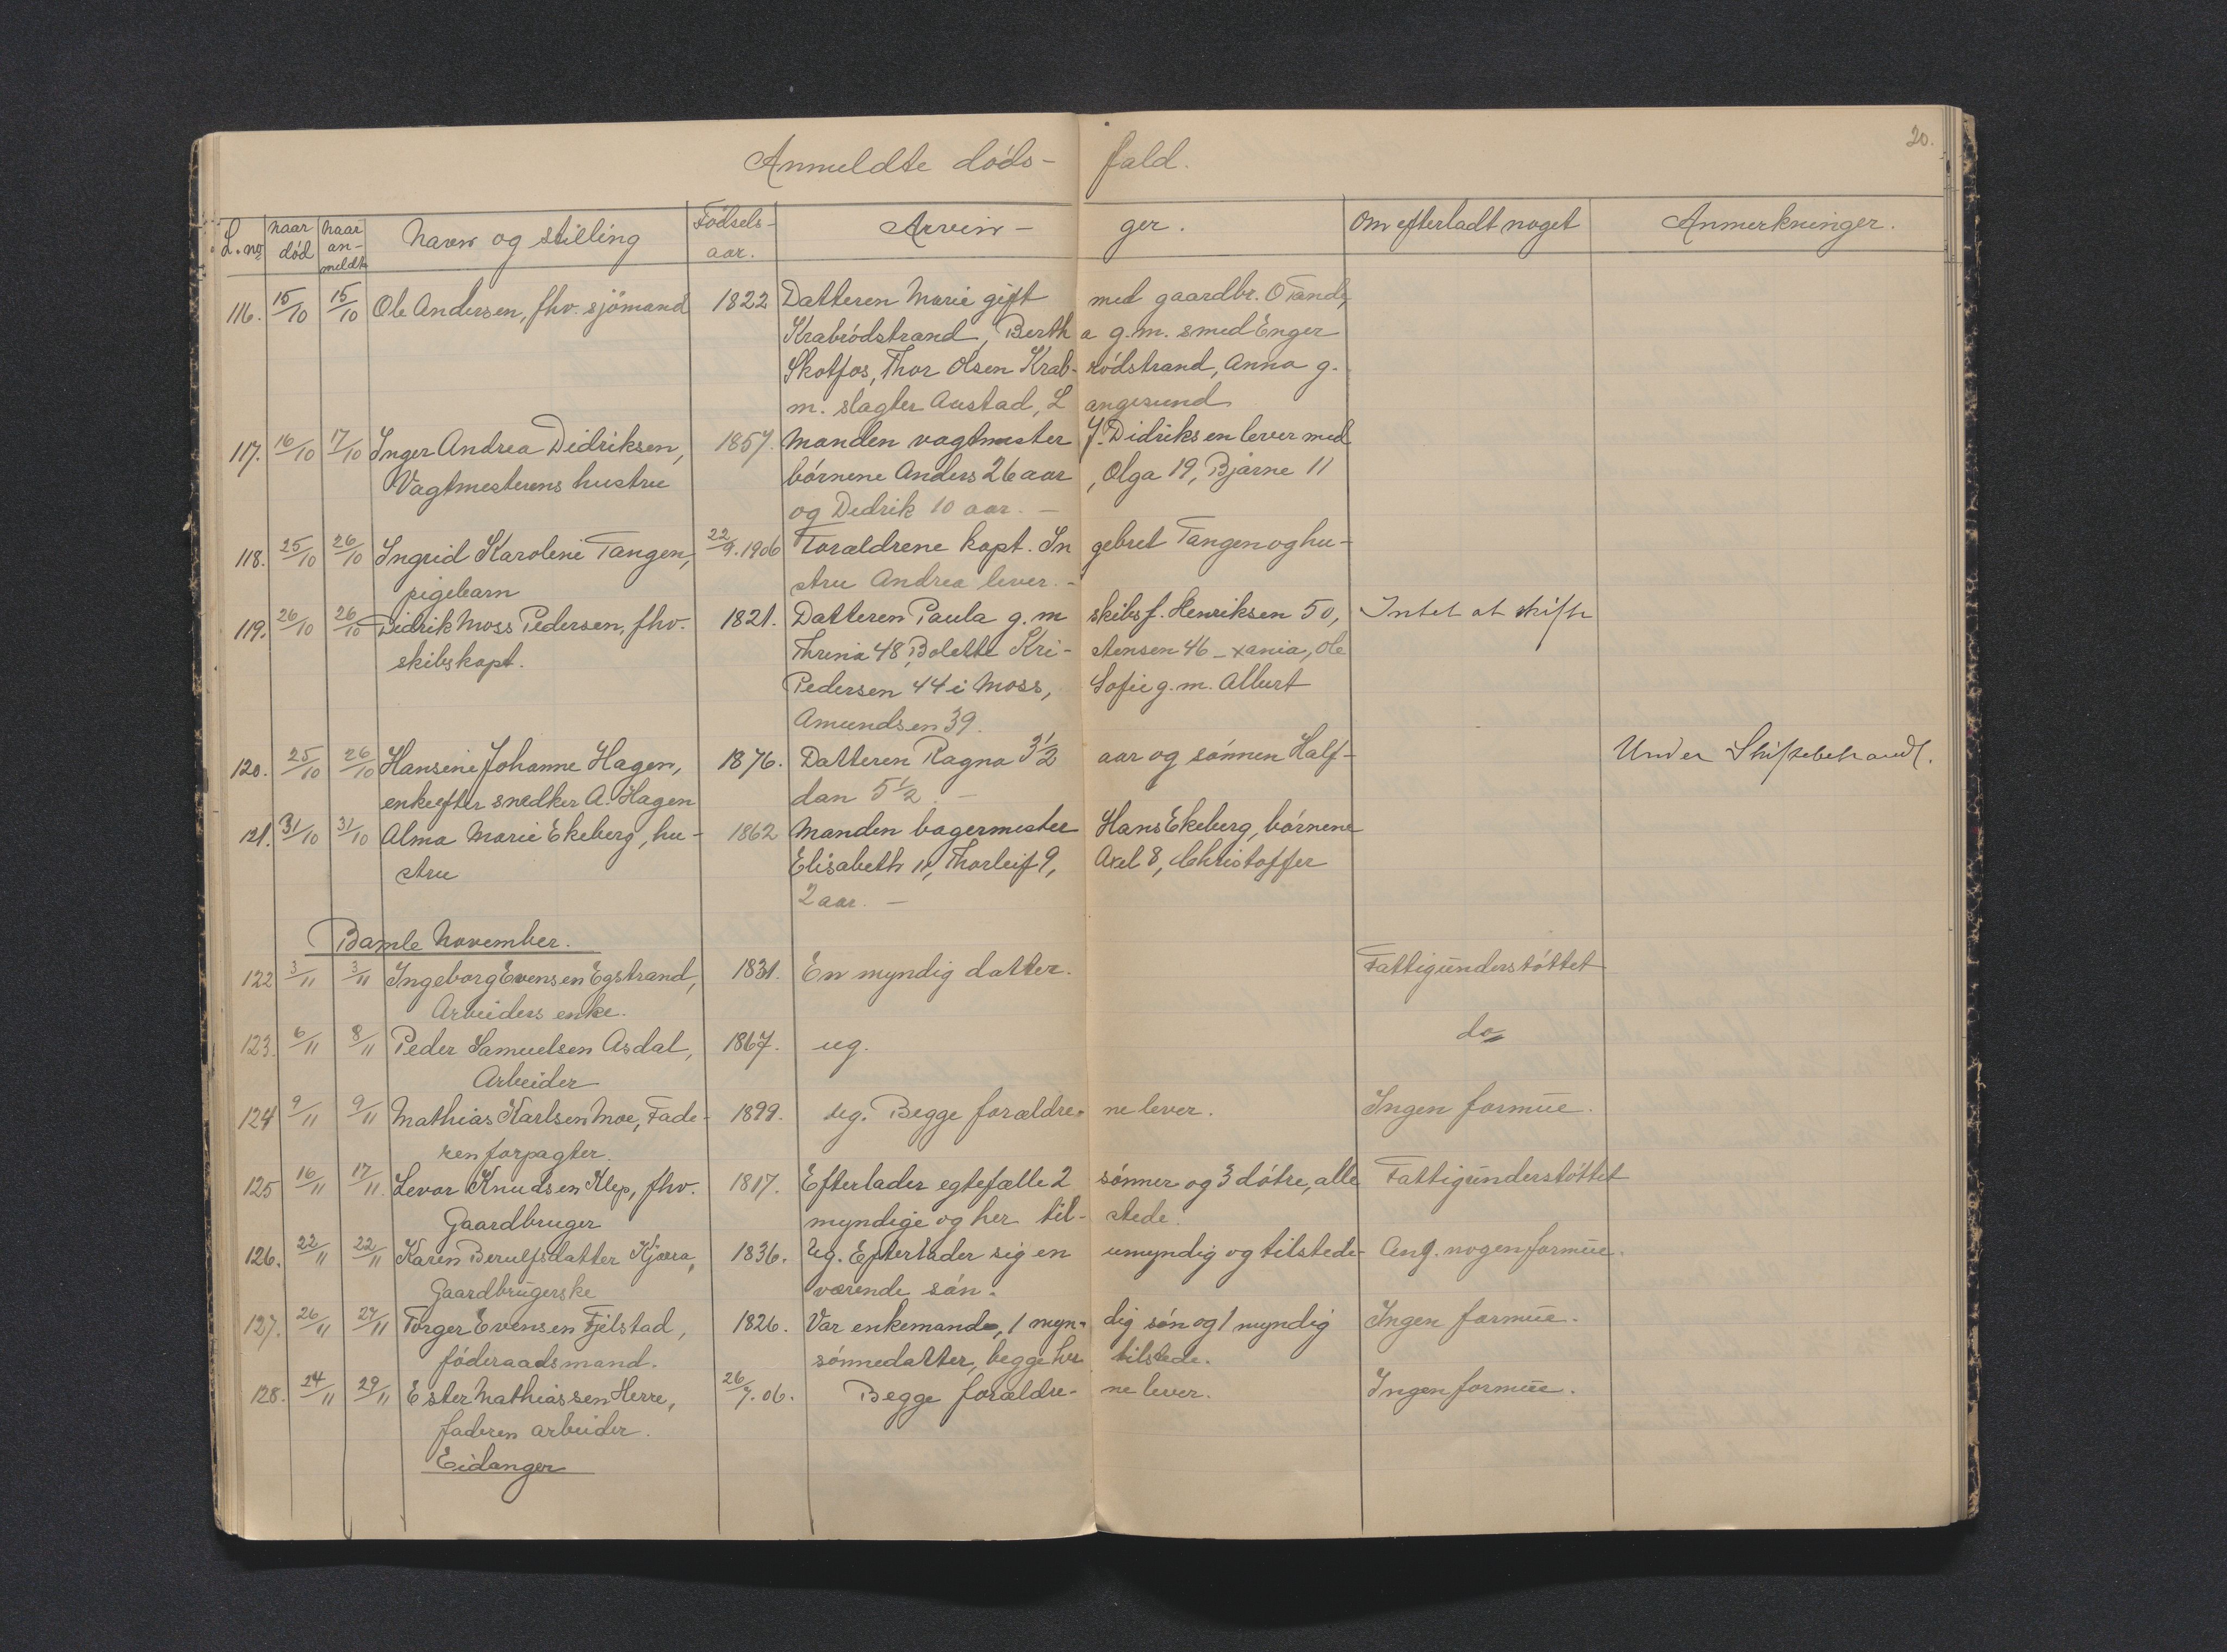 20.
Anmeldte døds- fald.
L. no naar død naar an-meldt Navn og stilling Fødsels-aar. Arvin- ger. Om efterladt noget Anmerkninger.
116. 15/10 15/10 Ole Andersen, fhv. sjömand 1822 Datteren Marie gift med gaardbr. O Tande,
Krabródstrand, Berth a g.m. smed Enger
Skotfos, Thor Olsen Krab- ródstrand, Anna g.
m. slagter Austad, L angesund
117. 16/10 17/10 Inger Andrea Didriksen, 1857. Manden vagtmester J. Didriksen lever med
Vagtmesterens hustru børnene Anders 26 aar , Olga 19, Bjarne 11
og Dedrik 10 aar. —
118. 25/10 26/10 Ingrid Karoline Tangen, 22/9. 1906 Forældrene kapt. In gebret Tangen og hu-
pigebarn stru Andrea lever. -
119. 26/10 26/10 Didrik Moss Pedersen, fhv. 1821. Datteren Paula g. m skibsf. Henriksen 50, Intet at skifte
skibskapt. Thrina 48, Bolette Kri- stensen 46 - xania, Ole
Pedersen 44 i Moss, Sofie g.m. Albert
Amundsen 39.
120. 25/10 26/10 Hansine Johanne Hagen, 1876. Datteren Ragna 3½ aar og sønnen Half- Under Skiftebehandl.
enke efter snedker A. Hagen dan 5½. —
121. 31/10 31/10 Alma Marie Ekeberg, hu- 1862 Manden bagermester Hans Ekeberg, børnene
stru Elisabeth 11, Thorleif 9, Axel 8, Christoffer
2 aar. —
Bamle November.
122 3/11 3/11 Ingeborg Evensen Egstrand, 1831. En myndig datter. Fattigunderstøttet
Arbeiders enke.
123. 6/11 8/11 Peder Samuelsen Asdal, 1867. ug. do
Arbeider
124 9/11 9/11 Mathias Karlsen Moe, Fade- 1899. Ug. Begge forældre- ne lever. Ingen formue.
ren forpagter.
125 16/11 17/11. Levor Knudsen Klep, fhv. 1817. Efterlader egtefælle 2 sønner og 3 døtre, alle Fattigunderstøttet
Gaardbruger myndige og her til- stede.
126. 22/11 22/11 Karen Berulfsdatter Kjørra, 1836. Ug. Efterlader sig en umyndig og tilstede- Ang. nogen formue.
Gaardbrugerske værende søn.
127. 26/11 27/11 Torger Evensen Fjelstad, 1826. Var enkemand, 1 myn- dig søn og 1 myndig Ingen formue.
føderaadsmand. sønnedatter, begge her tilstede.
128. 24/11 29/11 Ester Mathiassen Herre, 26/7. 06. Begge forældre- ne lever. Ingen formue.
faderen arbeider.
Eidanger